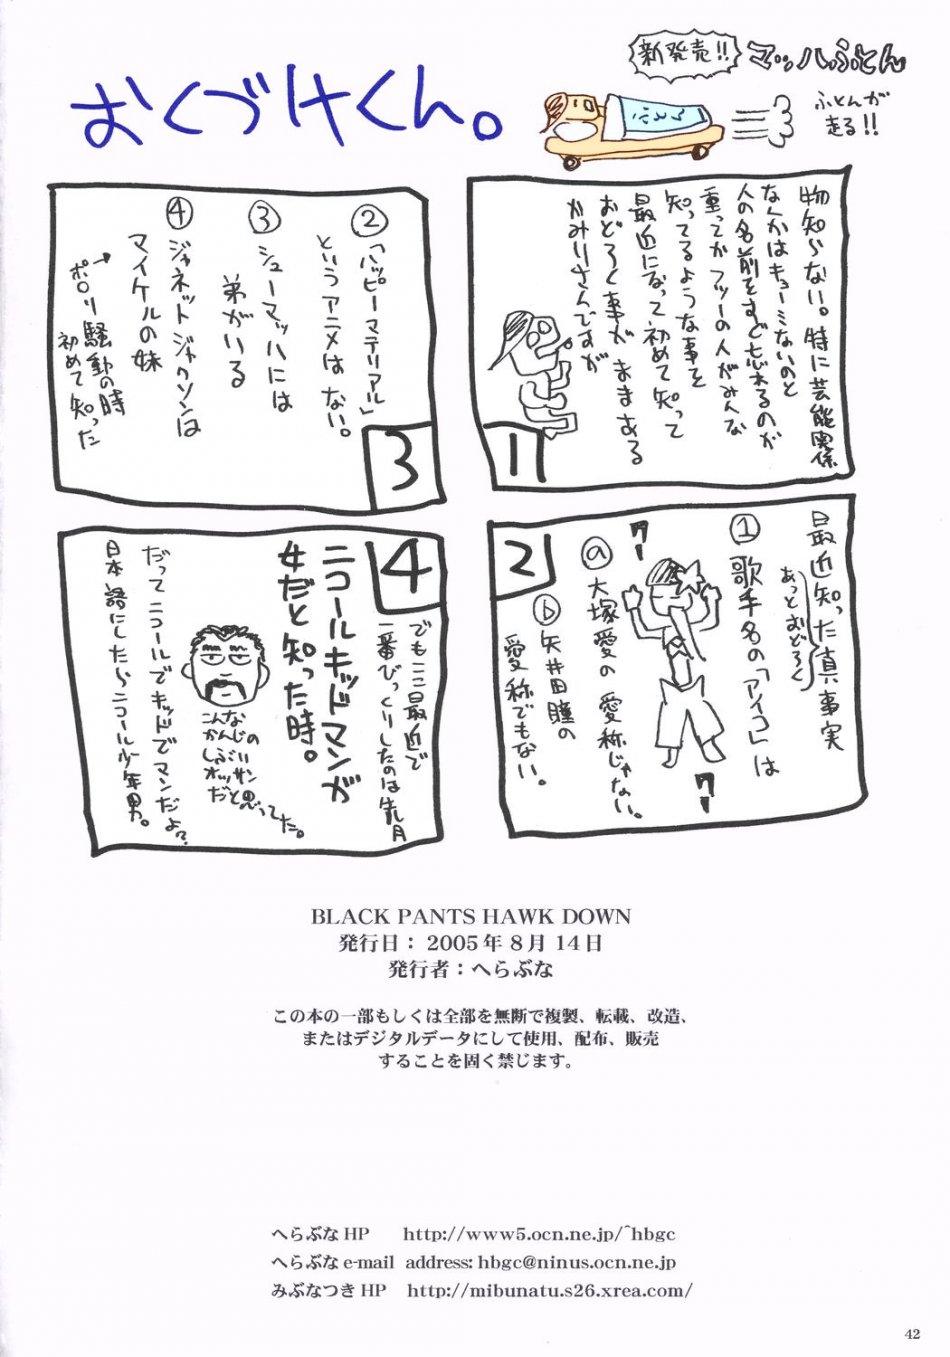 おくづけくん。
新発売!!
マッハふとん
ふとんが
走る!!
ふとん
物知らない。特に芸能関係
なんかはキョーミないのと
人の名前をすぐ忘れるのが
重ってかフツーの人がみんな
知ってるような事を
最近になって初めて知って
おどろく事がままある
かみりさんですが
1
2
最近知った真事実
あっとおどろく
① 歌手名の「アイコ」は
ⓐ 大塚愛の愛称じゃない。
ⓑ 矢井田瞳の
愛称でもない。
クー
クー
3
② 「ハッピーマテリアル」
というアニメはない。
③ シューマッハには
弟がいる
④ ジャネットジャクソンは
マイケルの妹
→ポロリ騒動の時
初めて知った
4
でもここ最近で
一番びっくりしたのは先月
ニコールキッドマンが
女だと知った時。
こんな
かんじの
しぶい
オッサン
だと思ってた。
だってニコールでキッドでマンだよ?
日本語にしたらニコール少年男。
BLACK PANTS HAWK DOWN
発行日：2005年8月14日
発行者：へらぶな
この本の一部もしくは全部を無断で複製、転載、改造、
またはデジタルデータにして使用、配布、販売
することを固く禁じます。
へらぶなHP http://www5.ocn.ne.jp/~hbgc
へらぶなe-mail address:hbgc@ninus.ocn.ne.jp
みぶなつきHP http://mibunatu.s26.xrea.com/
42